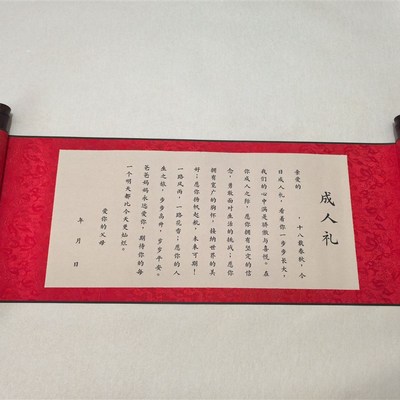 成人礼
亲爱的 ，十八载春秋，今
日成人礼，看着你一步步长大，
我们的心中满是骄傲与喜悦。在
你成人之际，愿你拥有坚定的信
念，勇敢面对生活的挑战；愿你
拥有宽广的胸怀，接纳世界的美
好；愿你扬帆起航，未来可期！
一路风雨，一路花香；愿你的人
生之旅，步步高升，岁岁平安。
爸爸妈妈永远爱你，期待你的每
一个明天都比今天更灿烂。
爱你的父母
年 月 日